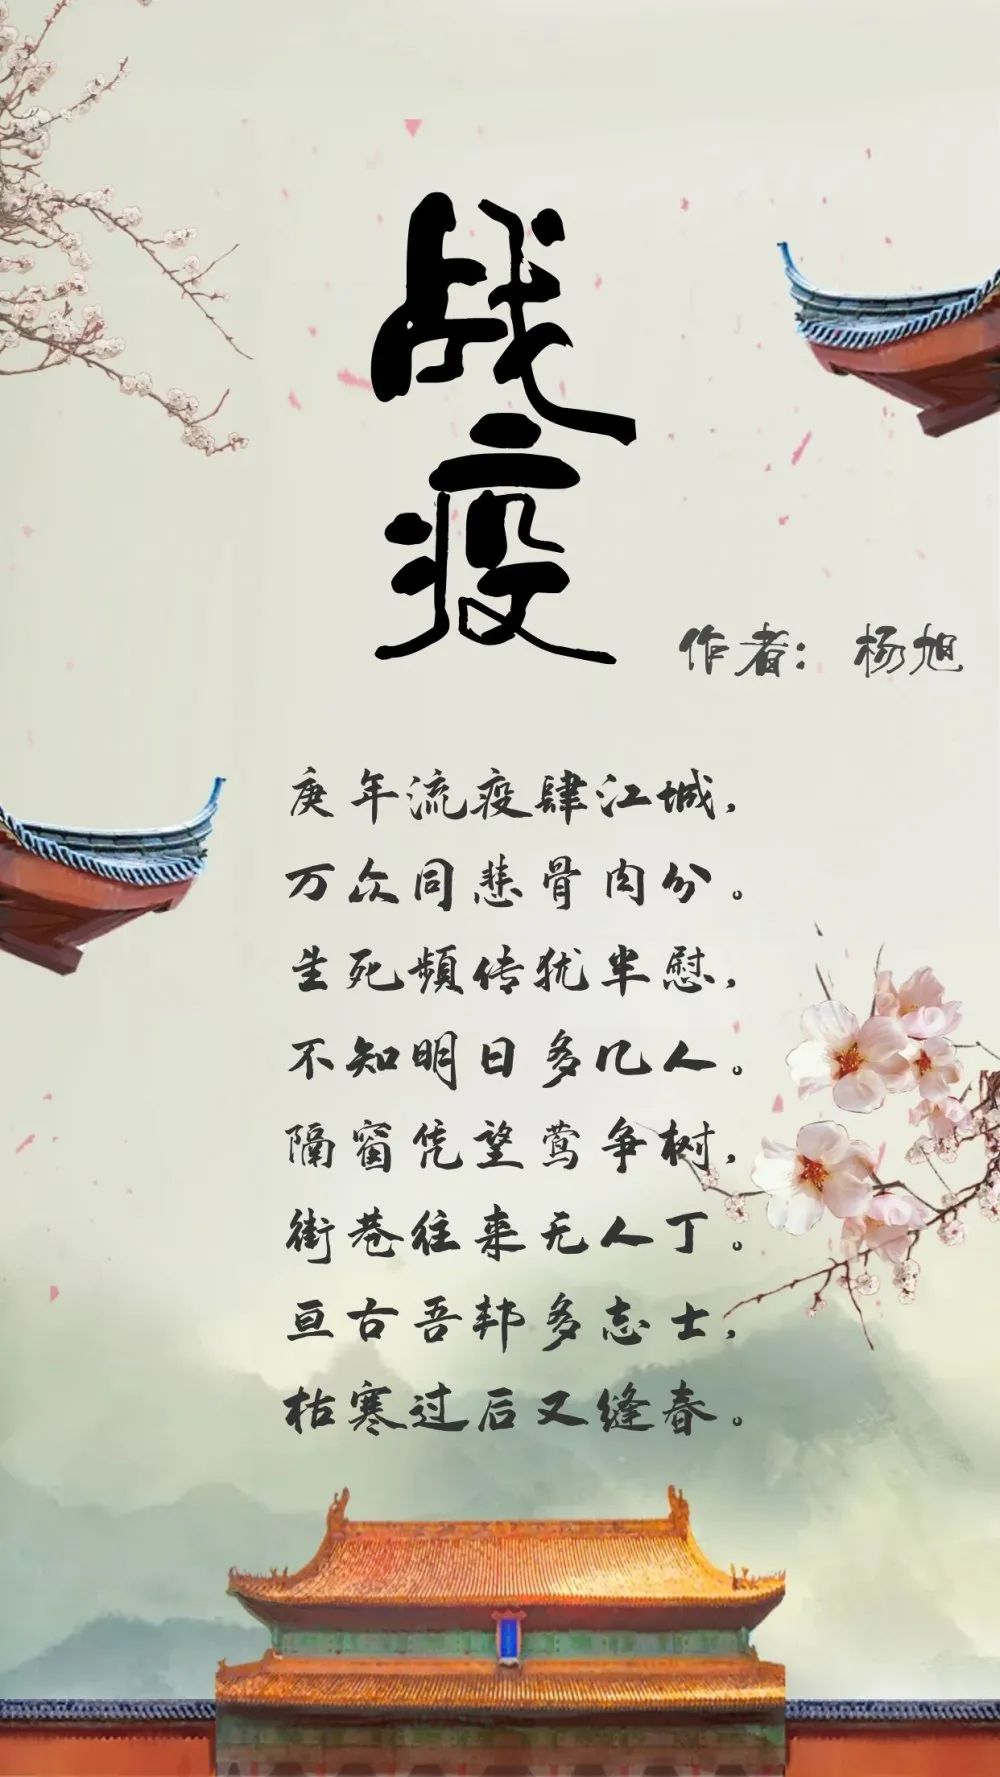 战
疫
作者：杨旭
庚年流疫肆江城，
万众同悲骨肉分。
生死频传犹半慰，
不知明日多几人。
隔窗凭望莺争树，
街巷往来无人丁。
亘古吾邦多志士，
枯寒过后又缝春。